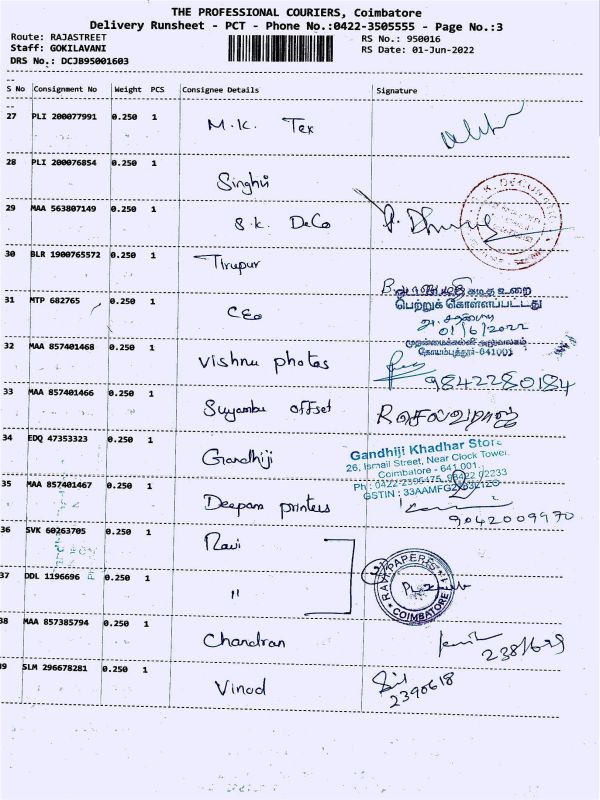 THE PROFESSIONAL COURIERS, Coimbatore
Delivery Runsheet - PCT - Phone No.:0422-3505555 - Page No.:3
Route: RAJASTREET
Staff: GOKILAVANI
DRS No.: DCJB95001603
RS No.: 950016
RS Date: 01-Jun-2022
S No Consignment No Weight PCS Consignee Details Signature
27 PLI 200077991 0.250 1 M.K. Tex
28 PLI 200076854 0.250 1 Singhvi
29 MAA 563807149 0.250 1 S.K. DeCo
30 BLR 1900765572 0.250 1 Tirupur
31 MTP 682765 0.250 1 CEO
கடித உறை
பெற்றுக் கொள்ளப்பட்டது
01/6/2022
முதன்மைக்கல்வி அலுவலகம்
கோயம்புத்தூர்-641001
32 MAA 857401468 0.250 1 Vishnu photos
9842280184
33 MAA 857401466 0.250 1 Suyambu offset
R செல்வராஜ்
34 EDQ 47353323 0.250 1 Gandhiji
Gandhiji Khadhar Store
26, Ismail Street, Near Clock Tower,
Coimbatore - 641 001.
Ph : 0422-2396475, 98422 02233
GSTIN : 33AAMFG
35 MAA 857401467 0.250 1 Deepam printers
9042009970
36 SVK 60263705 0.250 1 Ravi
37 DDL 1196696 0.250 1 "
RAVI PAPERS
COIMBATORE
38 MAA 857385794 0.250 1 Chandran
2381629
39 SLM 296678281 0.250 1 Vinod
2390618